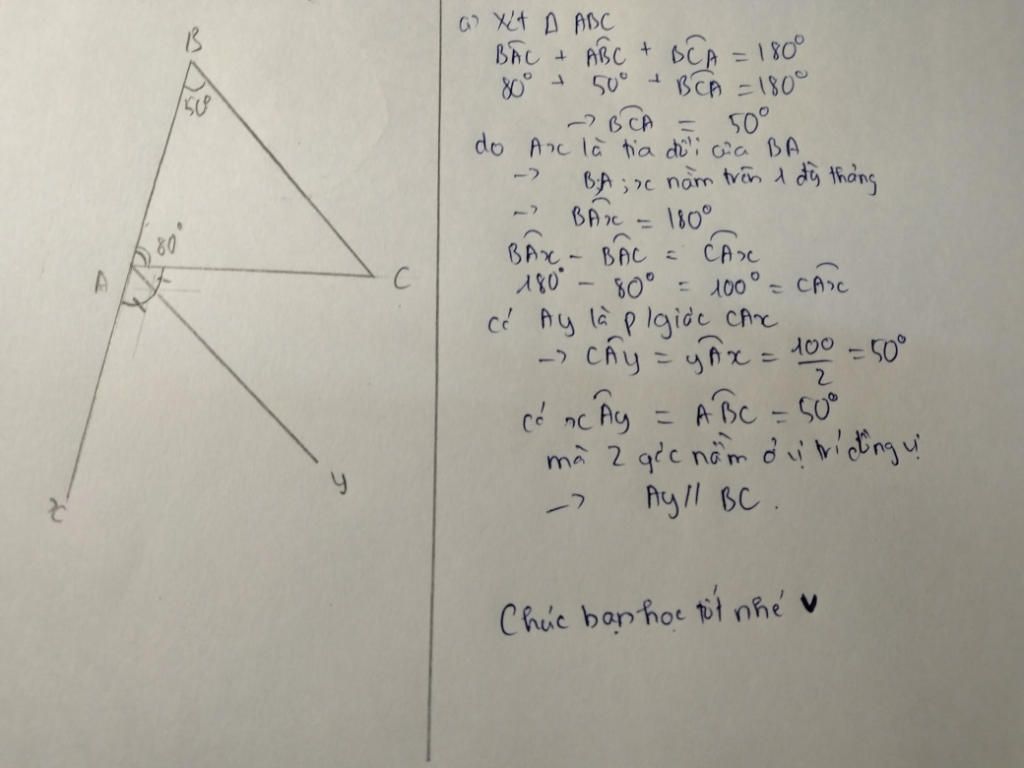 B
50°
80°
A
C
y
x
a) Xét Δ ABC
BÂC + AB̂C + BĈA = 180°
80° + 50° + BĈA = 180°
→ BĈA = 50°
do Ax là tia đối của BA
→ B;A;x nằm trên 1 đg thẳng
→ BÂx = 180°
BÂx - BÂC = CÂx
180° - 80° = 100° = CÂx
Có Ay là p/giác CAx
→ CÂy = yÂx = 100/2 = 50°
có xÂy = AB̂C = 50°
mà 2 góc nằm ở vị trí đồng vị
→ Ay // BC.
Chúc bạn học tốt nhé